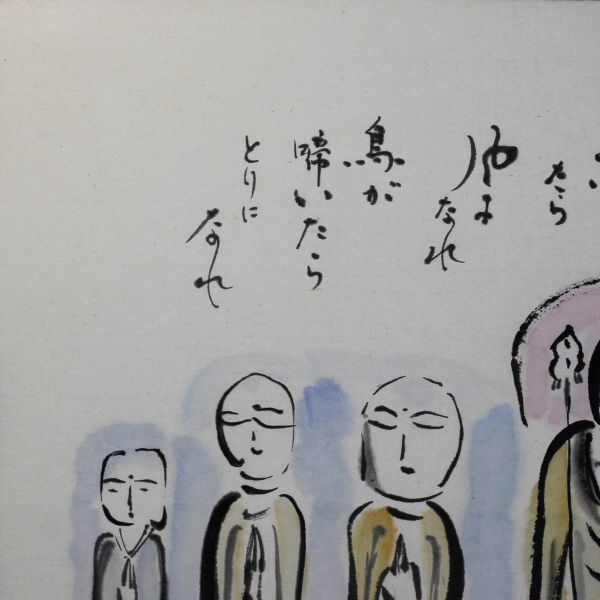 たら
風になれ
鳥が
啼いたら
とりに
なれ